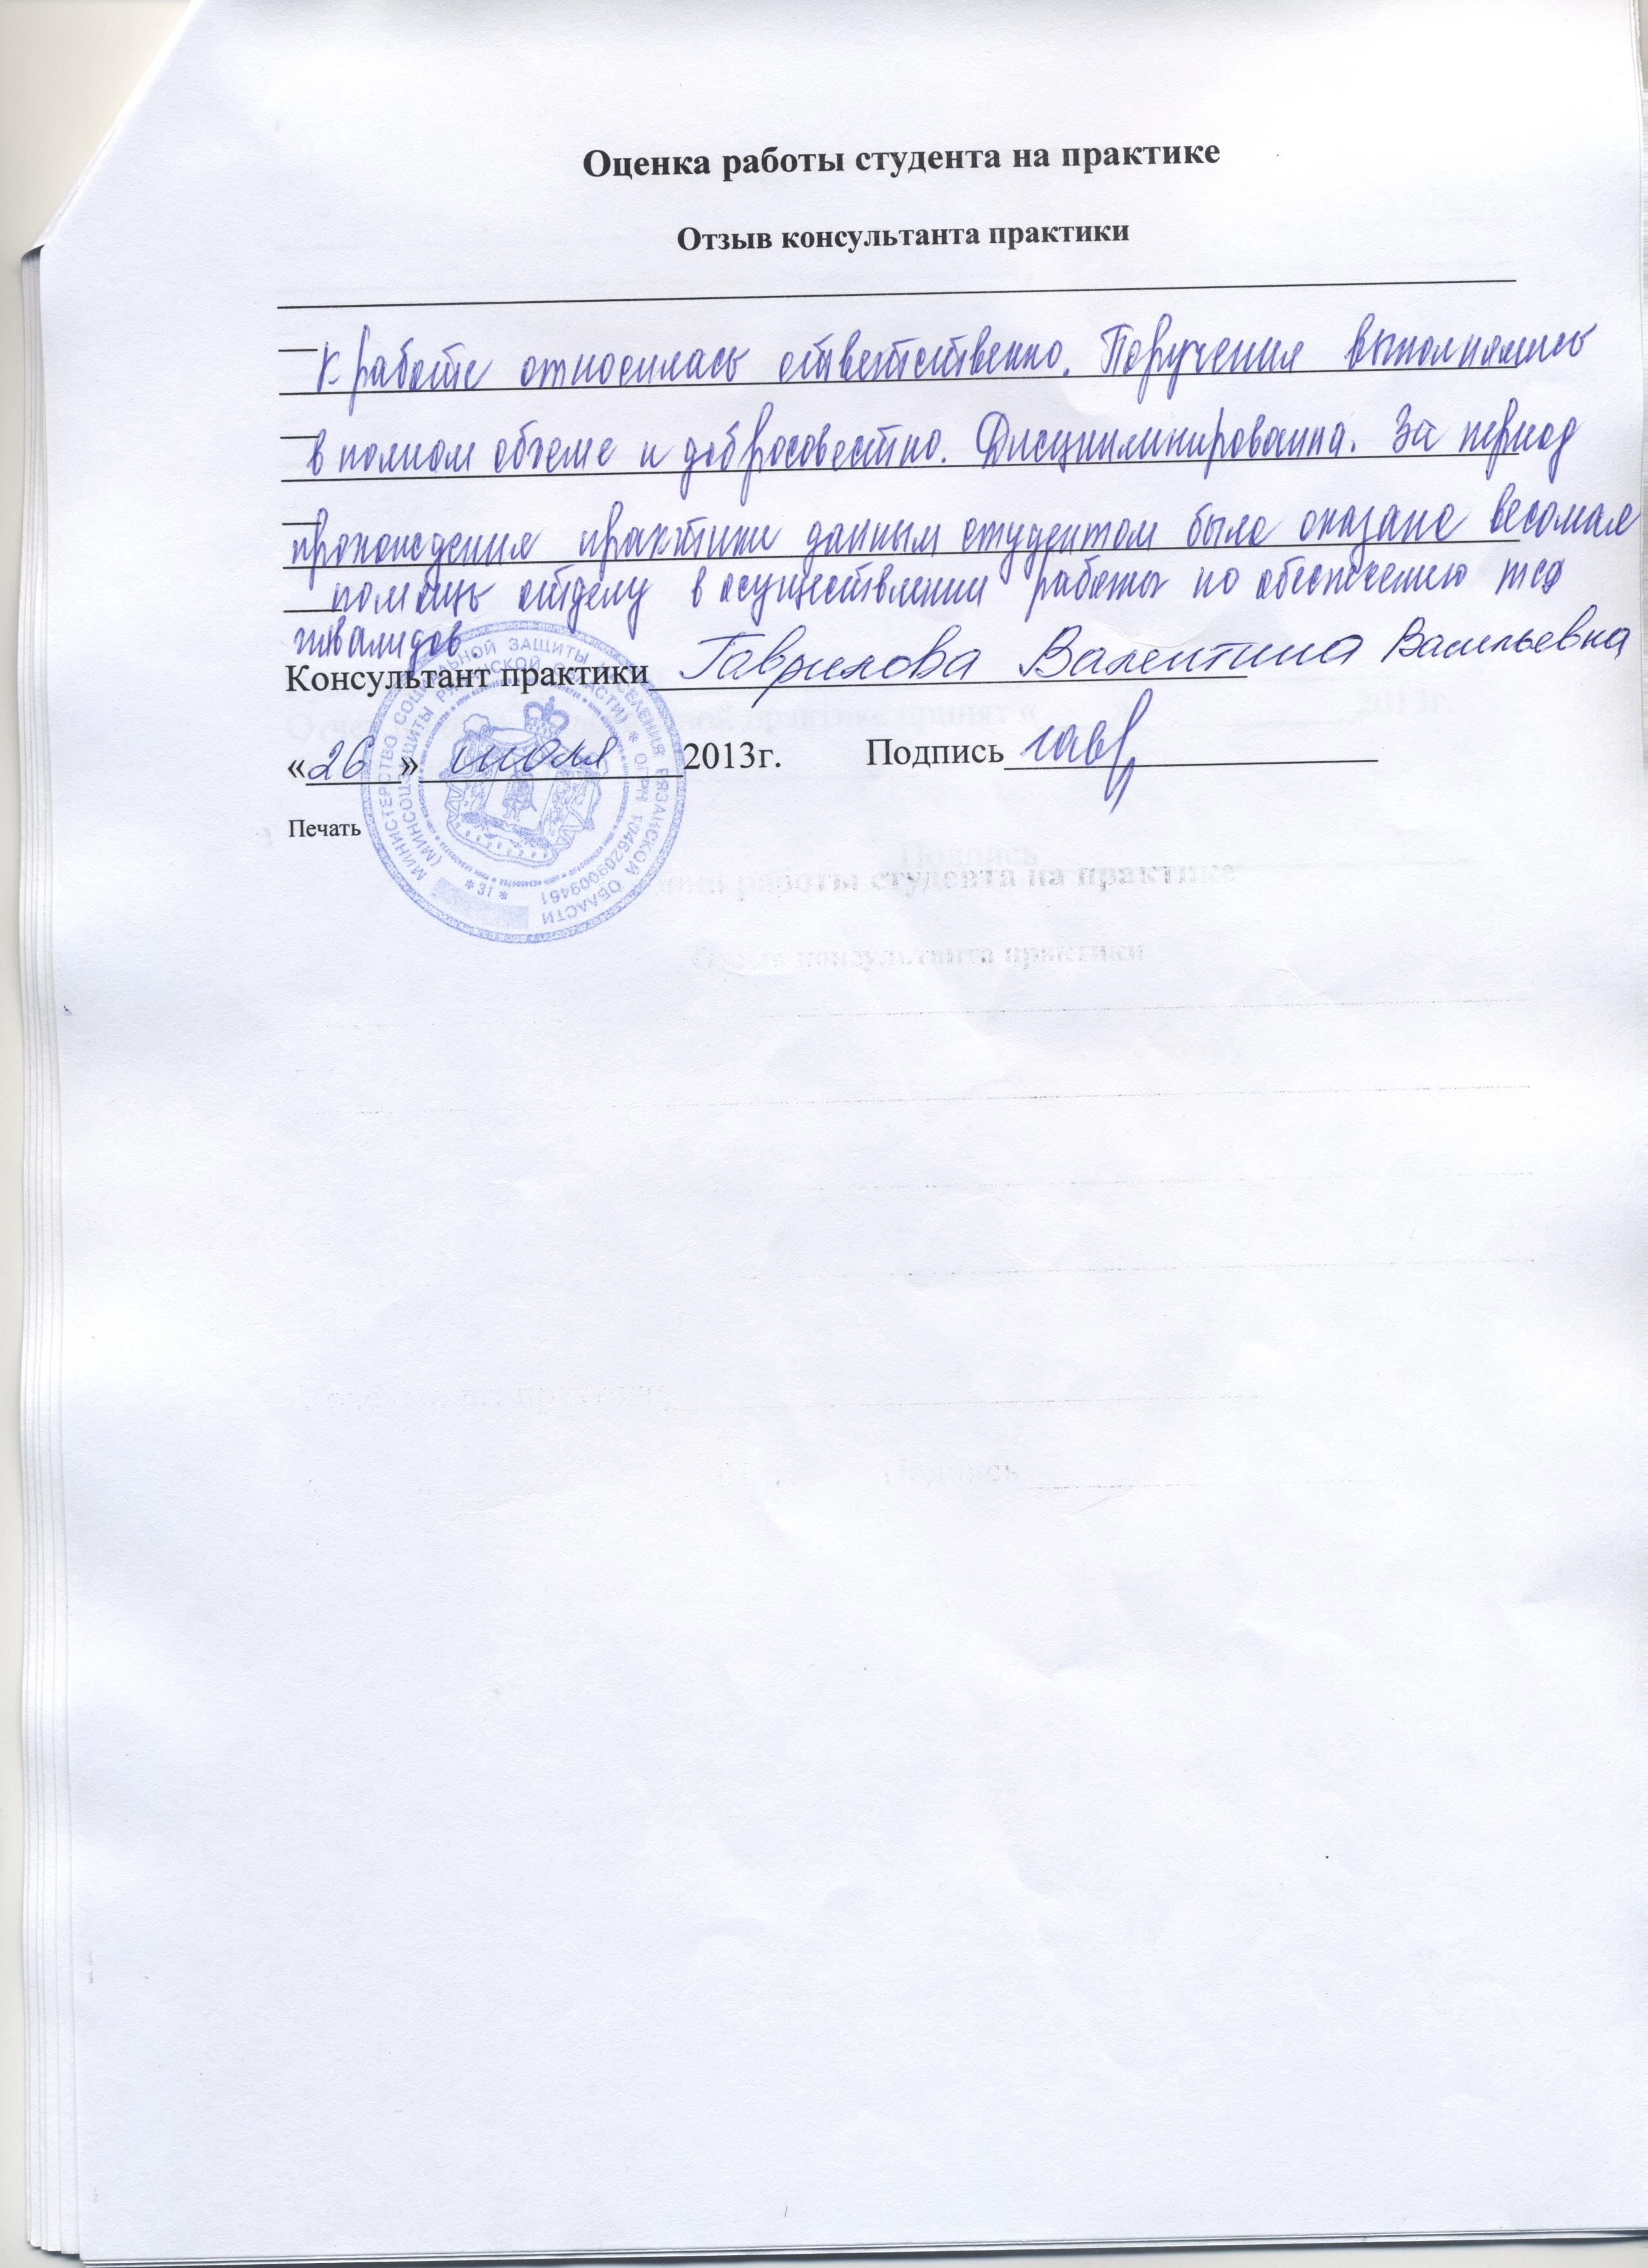 Оценка работы студента на практике
Отзыв консультанта практики
К работе относилась ответственно. Поручения выполнялись
в полном объеме и добросовестно. Дисциплинированна. За период
прохождения практики данным студентом была оказана весомая
помощь отделу в осуществлении работы по обеспечению тсо
инвалидов
Консультант практики Гаврилова Валентина Васильевна
«26» июля 2013г. Подпись
Печать
МИНИСТЕРСТВО СОЦИАЛЬНОЙ ЗАЩИТЫ НАСЕЛЕНИЯ РЯЗАНСКОЙ ОБЛАСТИ
(МИНСОЦЗАЩИТЫ РЯЗАНСКОЙ ОБЛАСТИ) * ОГРН 1046209009461
* 31 *